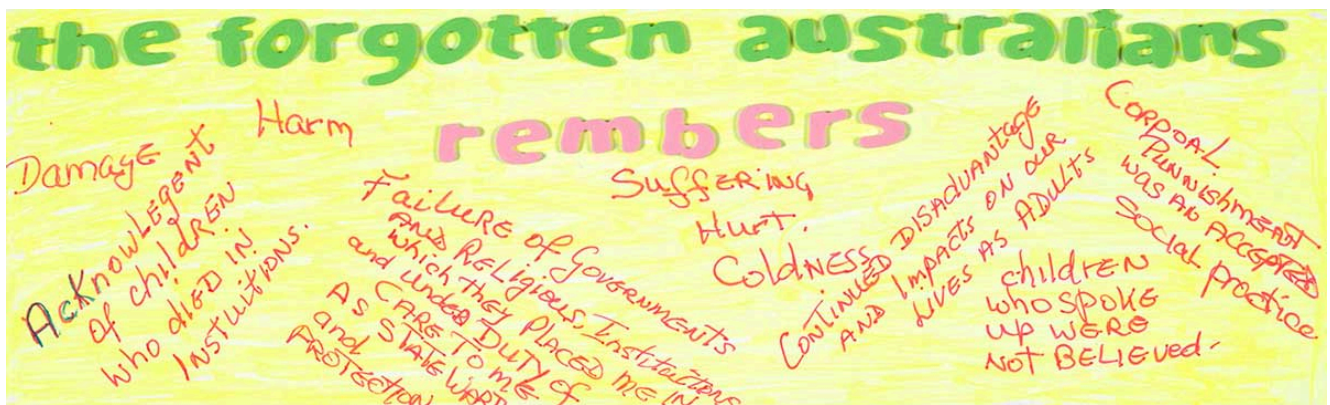 the forgotten australians
rembers
Harm
Damage
AcKnowLEGENT
of childREN
who diED IN
INSTUITIONS.
FailuRE of GovERNMENTS
AND RELigious, Institutions
which they PLACED ME IN
and under DUTY of
CARE TO ME
AS STATE WARD
and
PROTECTION
SuffERING
HuRT.
ColdNESS
CONTINUED DISADVANTAGE
AND Impacts ON OUR
LIVES AS ADULTS
CORPOAL
PUNNIShmENT
WAS AN ACCEPTED
SociAL practice
childREN
who SPOKE
up WERE
NOT BELIEVEd.